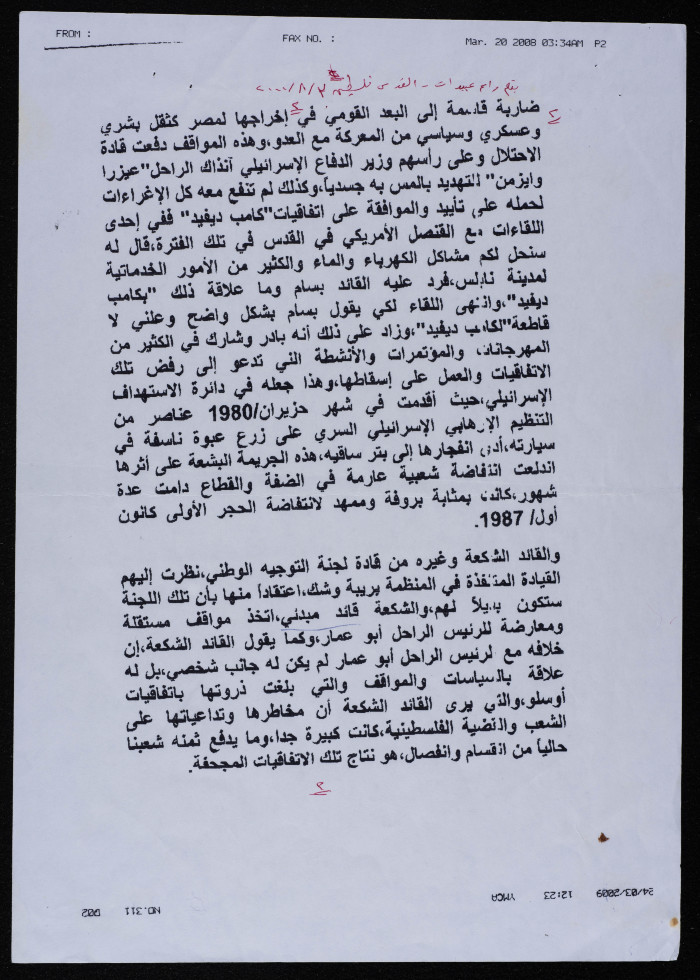 FROM :
FAX NO. :
Mar. 20 2008 03:34AM P2
بقلم راسم عبيدات - القدس
٢
ضاربة قاسمة إلى البعد القومي في إخراجها لمصر كثقل بشري
وعسكري وسياسي من المعركة مع العدو،وهذه المواقف دفعت قادة
الاحتلال وعلى رأسهم وزير الدفاع الإسرائيلي آنذاك الراحل"عيزرا
وايزمن" للتهديد بالمس به جسدياً،وكذلك لم تنفع معه كل الإغراءات
لحمله على تأييد والموافقة على اتفاقيات"كامب ديفيد" ففي إحدى
اللقاءات مع القنصل الأمريكي في القدس في تلك الفترة،قال له
سنحل لكم مشاكل الكهرباء والماء والكثير من الأمور الخدماتية
لمدينة نابلس،فرد عليه القائد بسام وما علاقة ذلك "بكامب
ديفيد"،وانتهى اللقاء لكي يقول بسام بشكل واضح وعلني لا
قاطعة"لكامب ديفيد"،وزاد على ذلك أنه بادر وشارك في الكثير من
المهرجانات والمؤتمرات والأنشطة التي تدعو إلى رفض تلك
الاتفاقيات والعمل على إسقاطها،وهذا جعله في دائرة الاستهداف
الإسرائيلي،حيث أقدمت في شهر حزيران/1980 عناصر من
التنظيم الإرهابي الإسرائيلي السري على زرع عبوة ناسفة في
سيارته،أدى انفجارها إلى بتر ساقيه،هذه الجريمة البشعة على أثرها
اندلعت انتفاضة شعبية عارمة في الضفة والقطاع دامت عدة
شهور،كانت بمثابة بروفة وممهد لانتفاضة الحجر الأولى كانون
أول/ 1987.
والقائد الشكعة وغيره من قادة لجنة التوجيه الوطني،نظرت إليهم
القيادة المتنفذة في المنظمة بريبة وشك،اعتقاداً منها بأن تلك اللجنة
ستكون بديلاً لهم،والشكعة قائد مبدئي،اتخذ مواقف مستقلة
ومعارضة للرئيس الراحل أبو عمار،وكما يقول القائد الشكعة،إن
خلافه مع لرئيس الراحل أبو عمار لم يكن له جانب شخصي،بل له
علاقة بالسياسات والمواقف والتي بلغت ذروتها باتفاقيات
أوسلو،والذي يرى القائد الشكعة أن مخاطرها وتداعياتها على
الشعب والقضية الفلسطينية،كانت كبيرة جدا،وما يدفع ثمنه شعبنا
حالياً من انقسام وانفصال،هو نتاج تلك الاتفاقيات المجحفة.
٢
24/03/2009 12:23 YMCA
NO.311 D02